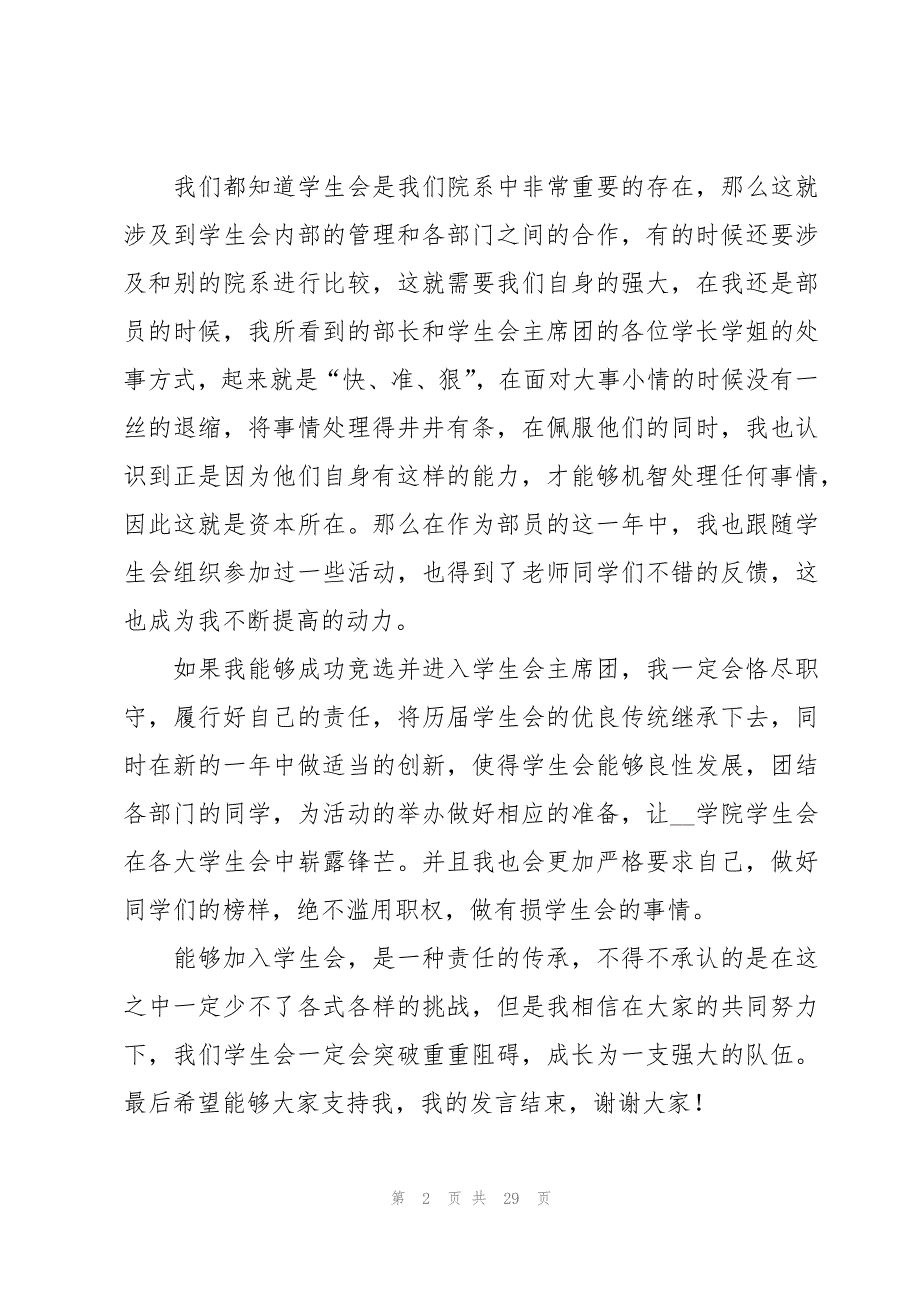 我们都知道学生会是我们院系中非常重要的存在，那么这就
涉及到学生会内部的管理和各部门之间的合作，有的时候还要涉
及和别的院系进行比较，这就需要我们自身的强大，在我还是部
员的时候，我所看到的部长和学生会主席团的各位学长学姐的处
事方式，起来就是“快、准、狠”，在面对大事小情的时候没有一
丝的退缩，将事情处理得井井有条，在佩服他们的同时，我也认
识到正是因为他们自身有这样的能力，才能够机智处理任何事情，
因此这就是资本所在。那么在作为部员的这一年中，我也跟随学
生会组织参加过一些活动，也得到了老师同学们不错的反馈，这
也成为我不断提高的动力。
如果我能够成功竞选并进入学生会主席团，我一定会恪尽职
守，履行好自己的责任，将历届学生会的优良传统继承下去，同
时在新的一年中做适当的创新，使得学生会能够良性发展，团结
各部门的同学，为活动的举办做好相应的准备，让__学院学生会
在各大学生会中崭露锋芒。并且我也会更加严格要求自己，做好
同学们的榜样，绝不滥用职权，做有损学生会的事情。
能够加入学生会，是一种责任的传承，不得不承认的是在这
之中一定少不了各式各样的挑战，但是我相信在大家的共同努力
下，我们学生会一定会突破重重阻碍，成长为一支强大的队伍。
最后希望能够大家支持我，我的发言结束，谢谢大家！
第 2 页 共 29 页